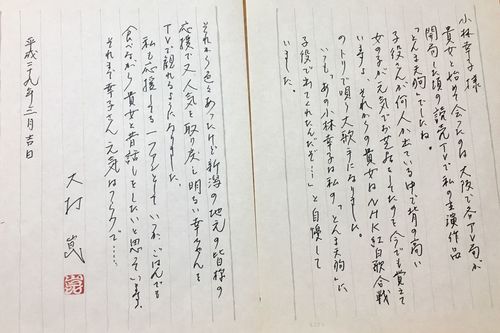 小林幸子様
貴女と始めて会ったのは大阪で各TV局が
開局した頃の読売TVで私の主演作品
「とんま天狗」でしたね。
子役さんが何人か出ている中で背の高い
女の子が元気でお芝居をしたのを今でも覚えて
います。それからの貴女はNHK紅白歌合戦
のトリで唄う大歌手になりました。
いつも、あの小林幸子は私の「とんま天狗」に
子役で出てくれたんだぞ…」と自慢して
いました。
それから色々あったけど新潟の地元の皆様の
応援で又人気を取り戻し明るい幸子さんを
TVで観れるようになりました。
私も応援してる一人として いつか ごはんでも
食べながら貴女と昔話しをしたいと思っています。
それまで幸子さん元気でネ
平成二九年三月吉日
大村崑
崑